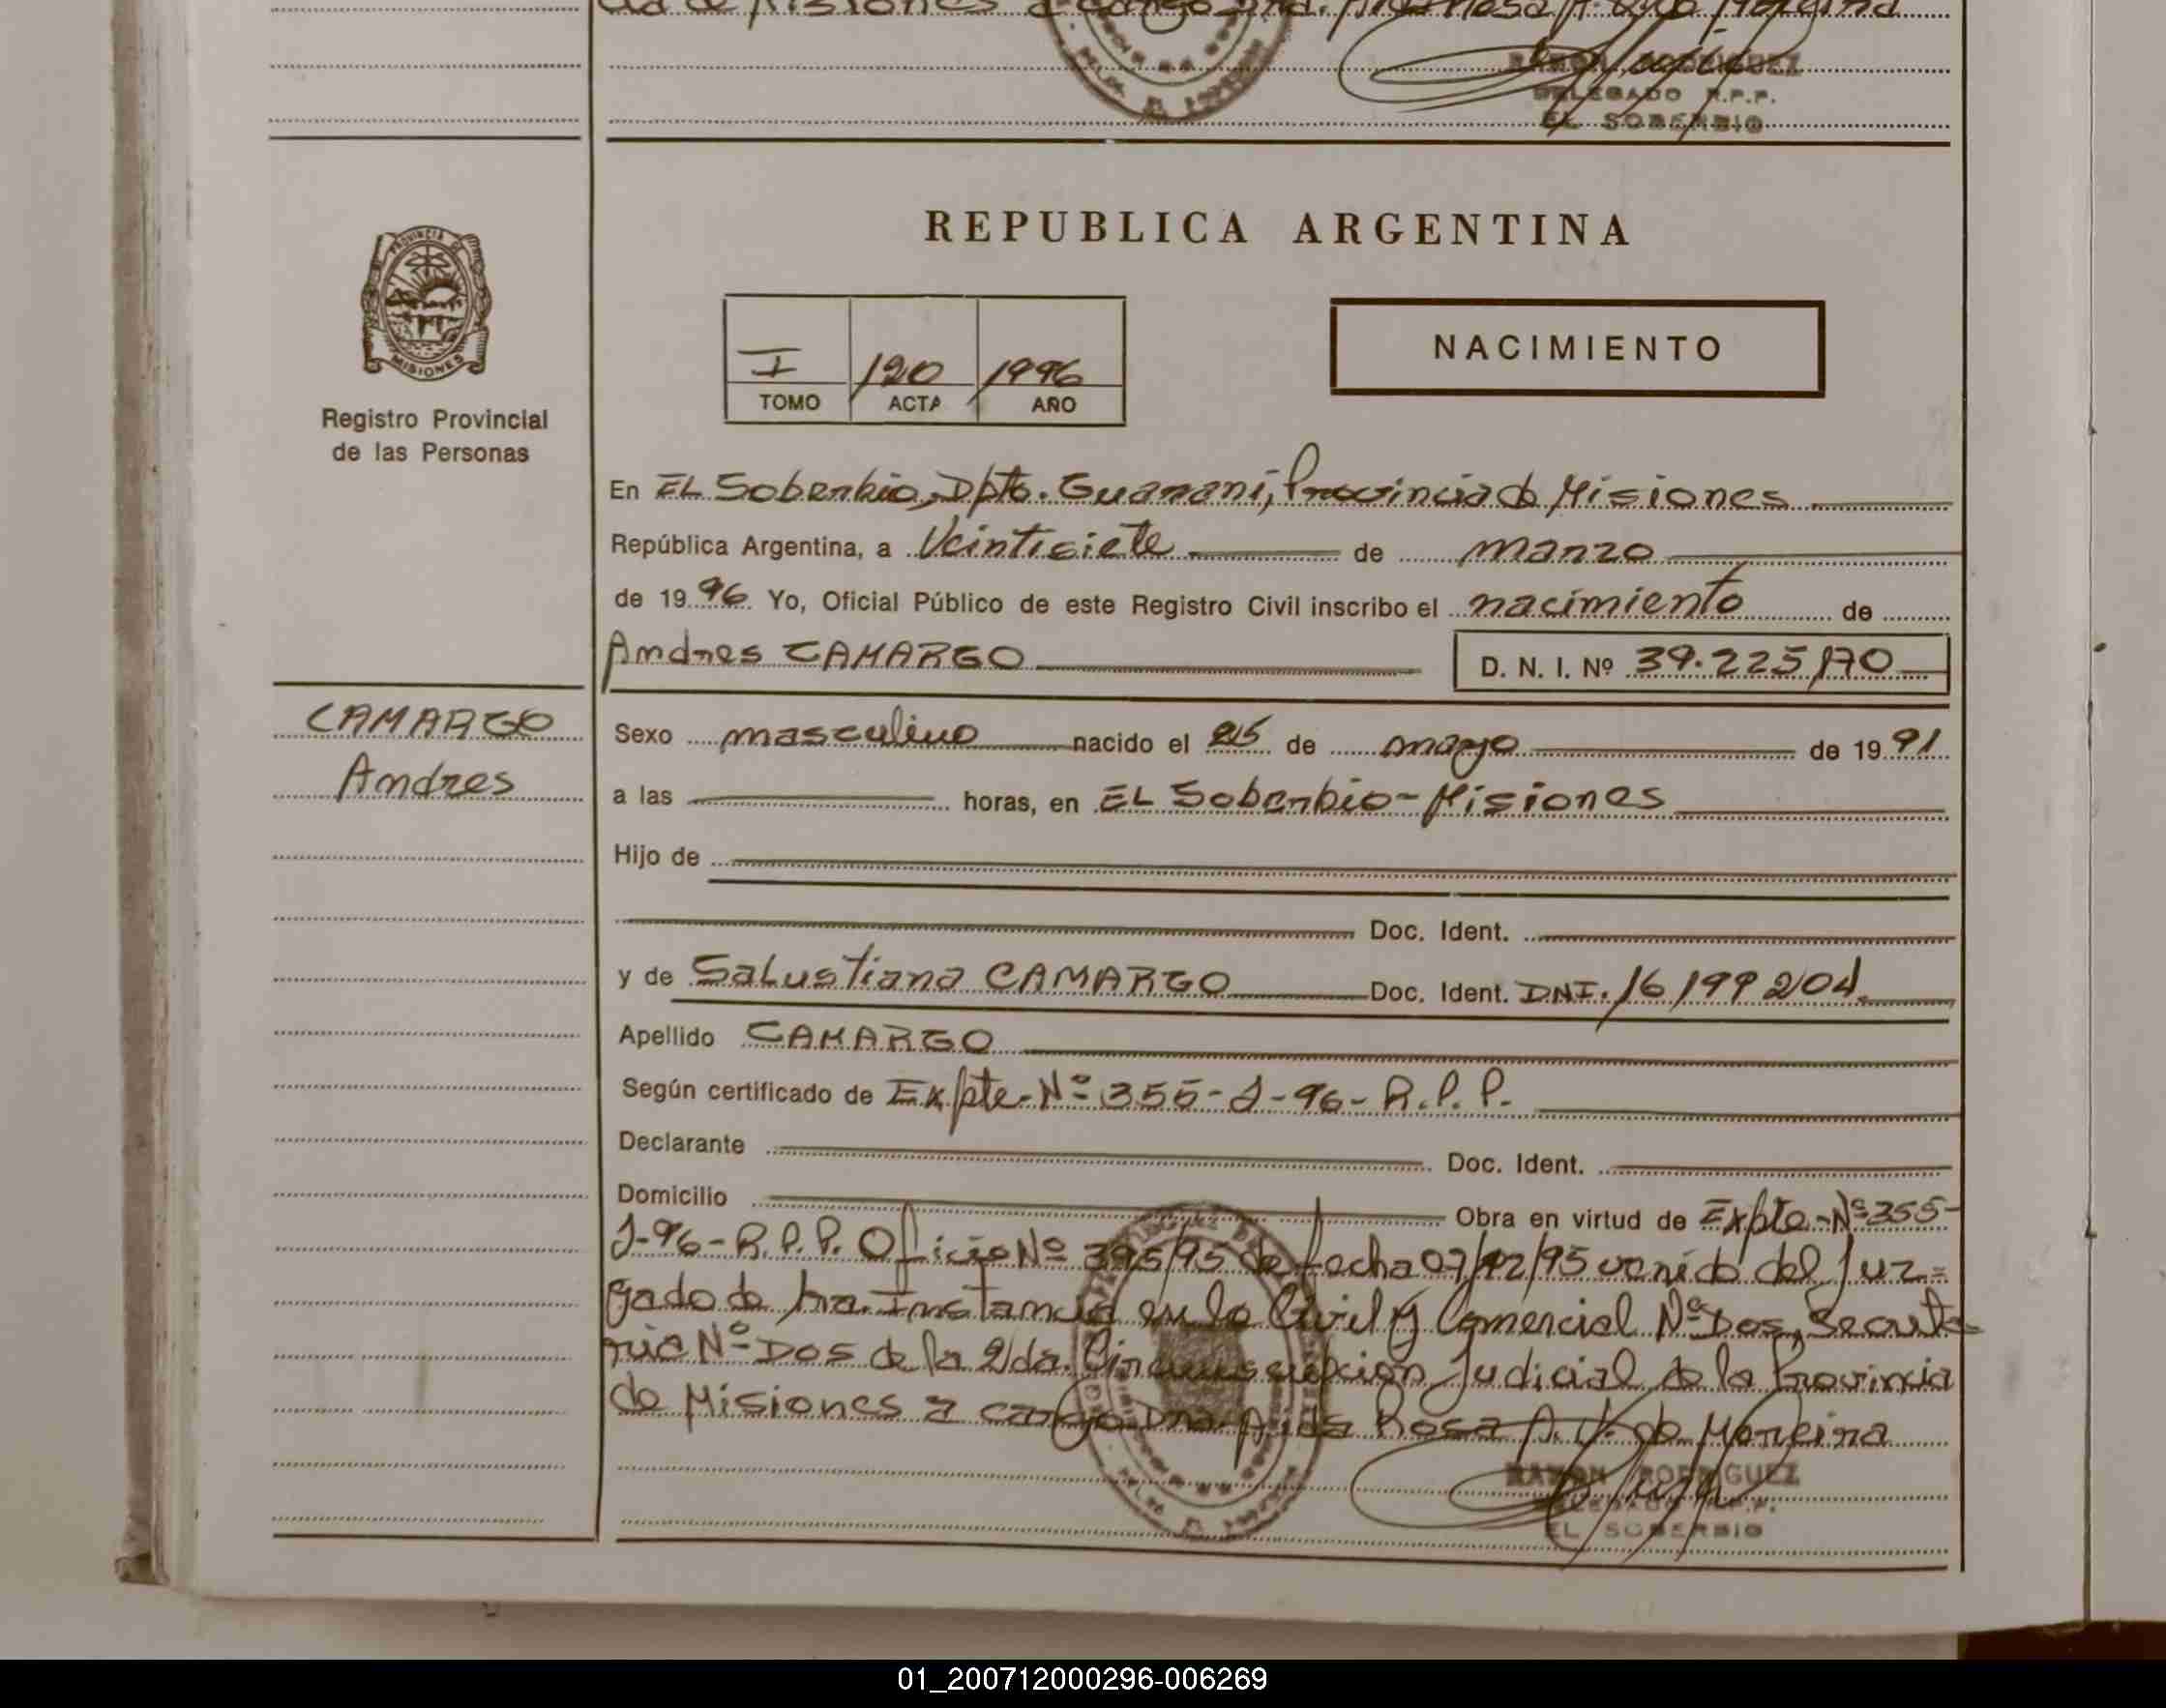 de Misiones a cargo Dra.
RAMON RODRIGUEZ
DELEGADO R.P.P.
EL SOBERBIO
PROVINCIA DE
MISIONES
Registro Provincial
de las Personas
REPUBLICA ARGENTINA
I 120 1996
TOMO ACTA AÑO
NACIMIENTO
En EL Soberbio, Dpto. Guarani, Provincia de Misiones
República Argentina, a Veintisiete de marzo
de 1996 Yo, Oficial Público de este Registro Civil inscribo el nacimiento de
Andres CAMARGO D. N. I. Nº 39.225.170
CAMARGO
Andres
Sexo masculino nacido el 25 de mayo de 1991
a las horas, en EL Soberbio-Misiones
Hijo de
Doc. Ident.
y de Salustiana CAMARGO Doc. Ident. DNI. 16.199.204.
Apellido CAMARGO
Según certificado de Expte-Nº 355-J-96-R.P.P.
Declarante Doc. Ident.
Domicilio Obra en virtud de Expte-Nº355-
J-96-R.P.P. Oficio Nº 395/95 de fecha 07/12/95 venido del Juz=
gado de 1ra. Instancia en lo Civil y Comercial Nº Dos, Secreta-
ria Nº Dos de la 2da. Circunscripcion Judicial de la Provincia
de Misiones a cargo Dra. Aida Rosa A. V. de Moreira
RAMON RODRIGUEZ
DELEGADO R.P.P.
EL SOBERBIO
01_200712000296-006269